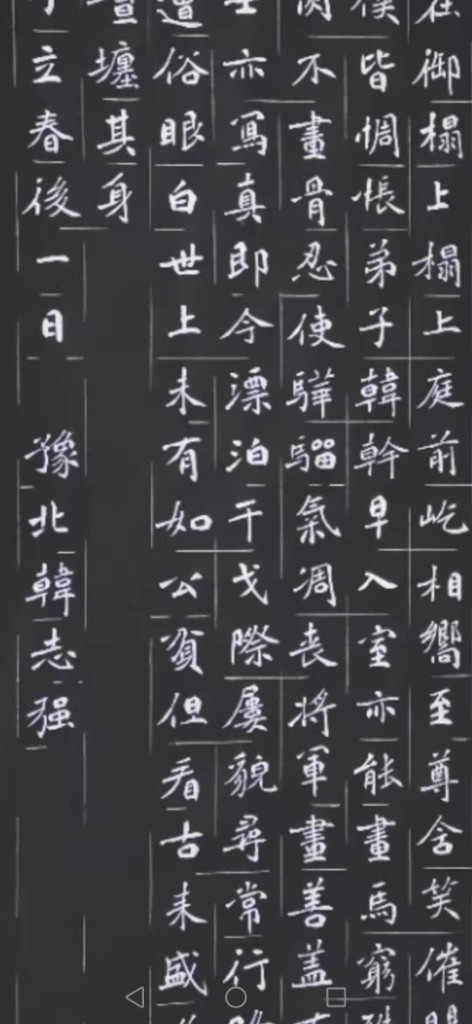 在御榻上榻上庭前屹相嚮至尊含笑催
僕皆惆悵弟子韓幹早入室亦能畫馬窮
不畫骨忍使驊騮氣凋喪將軍畫善蓋
士亦寫真即今漂泊干戈際屢貌尋常行
遭俗眼白世上未有如公貧但看古来盛
壥其身
立春後一日 豫北韓志强